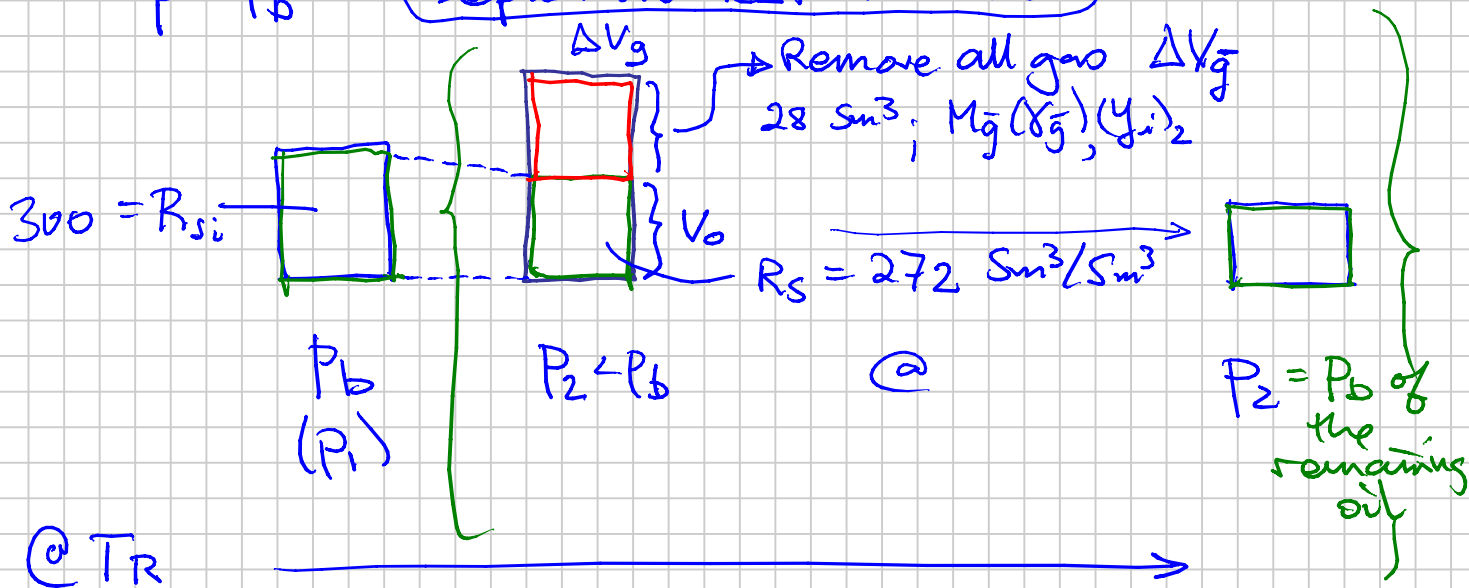 ΔVg
Remove all gas ΔVḡ
28 Sm³; Mḡ(γḡ), (yi)₂
300 = Rsi
Vo
Rs = 272 Sm³/Sm³
Pb
(P1)
P2 < Pb
@
P2 = Pb of
the
remaining
oil
@ TR